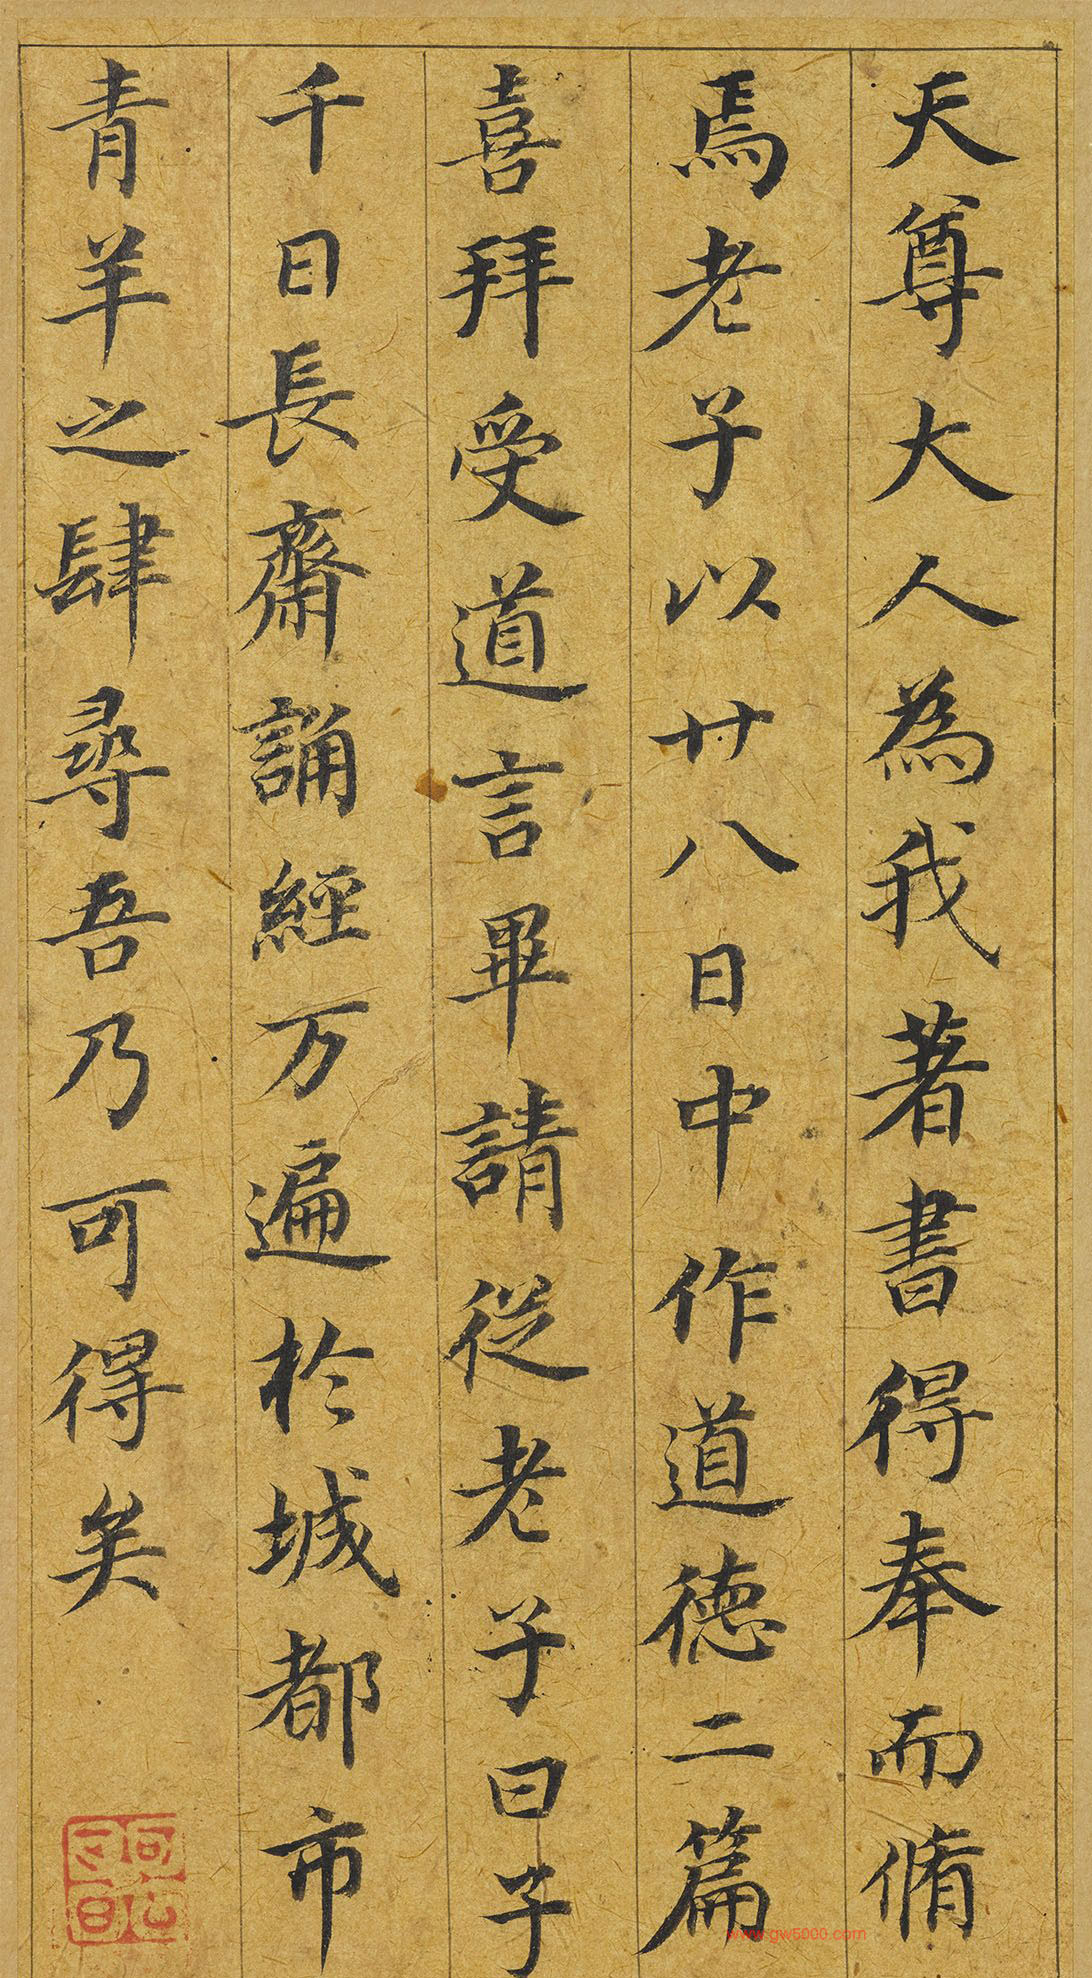 天尊大人為我著書得奉而脩
焉老子以廿八日中作道德二篇
喜拜受道言畢請従老子曰子
千日長齋誦經万遍於城都市
青羊之肆尋吾乃可得矣
www.gw5000.com